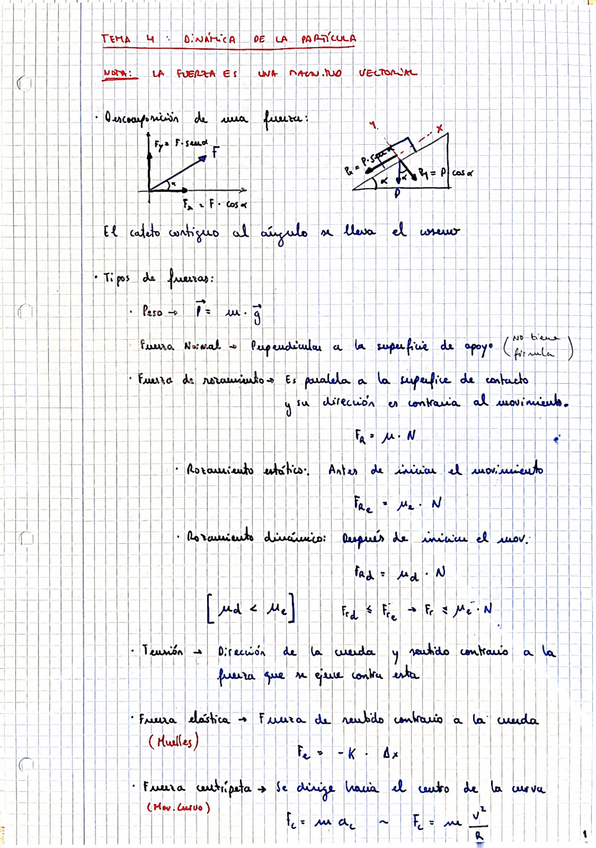 TEMA 4 : DINÁMICA DE LA PARTÍCULA
NOTA: LA FUERZA ES UNA MAGNITUD VECTORIAL
· Descomposición de una fuerza:
Fy = F · senα
F
α
Fx = F · cosα
y
x
Px = P · senα
α
α
Py = P cosα
P
El cateto contiguo al ángulo se lleva el coseno
· Tipos de fuerzas:
· Peso → P = m · g
Fuerza Normal → Perpendicular a la superficie de apoyo (No tiene fórmula)
· Fuerza de rozamiento → Es paralela a la superfice de contacto
y su dirección es contraria al movimiento.
FR = μ · N
· Rozamiento estático: Antes de iniciar el movimiento
FRe = μe · N
· Rozamiento dinámico: Después de iniciar el mov.
FRd = μd · N
[μd < μe] Frd ≤ Fre → Fr ≤ μe · N
· Tensión → Dirección de la cuerda y sentido contrario a la
fuerza que se ejerce contra esta
· Fuerza elástica → Fuerza de sentido contrario a la cuerda
(Muelles)
Fe = -K · Δx
· Fuerza centrípeta → Se dirige hacia el centro de la curva
(Mov. Curvo)
Fc = m ac ~ Fc = m v²/R
1